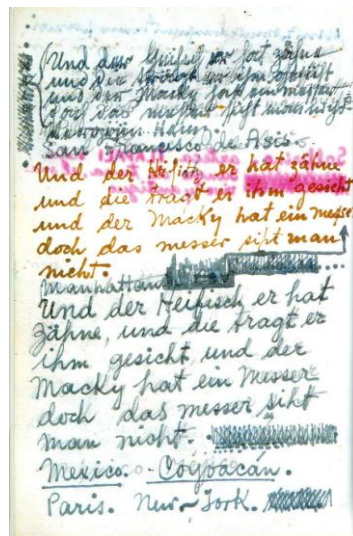 Und der Heifisch er hat zähne
und die tragt er ihm gesicht
und der Macky hat ein messer
doch das messer sieht man nicht
San Francisco de Asis.
Und der Heifisch er hat zähne
und die tragt er ihm gesicht
und der Macky hat ein messer
doch das messer siht man
nicht.
Manhattan
Und der Heifisch er hat
Zähne, und die tragt er
ihm gesicht, und der
Macky hat ein Messer
doch das messer siht
man nicht.
Mexico. - Coyoacán.
Paris. New-York.